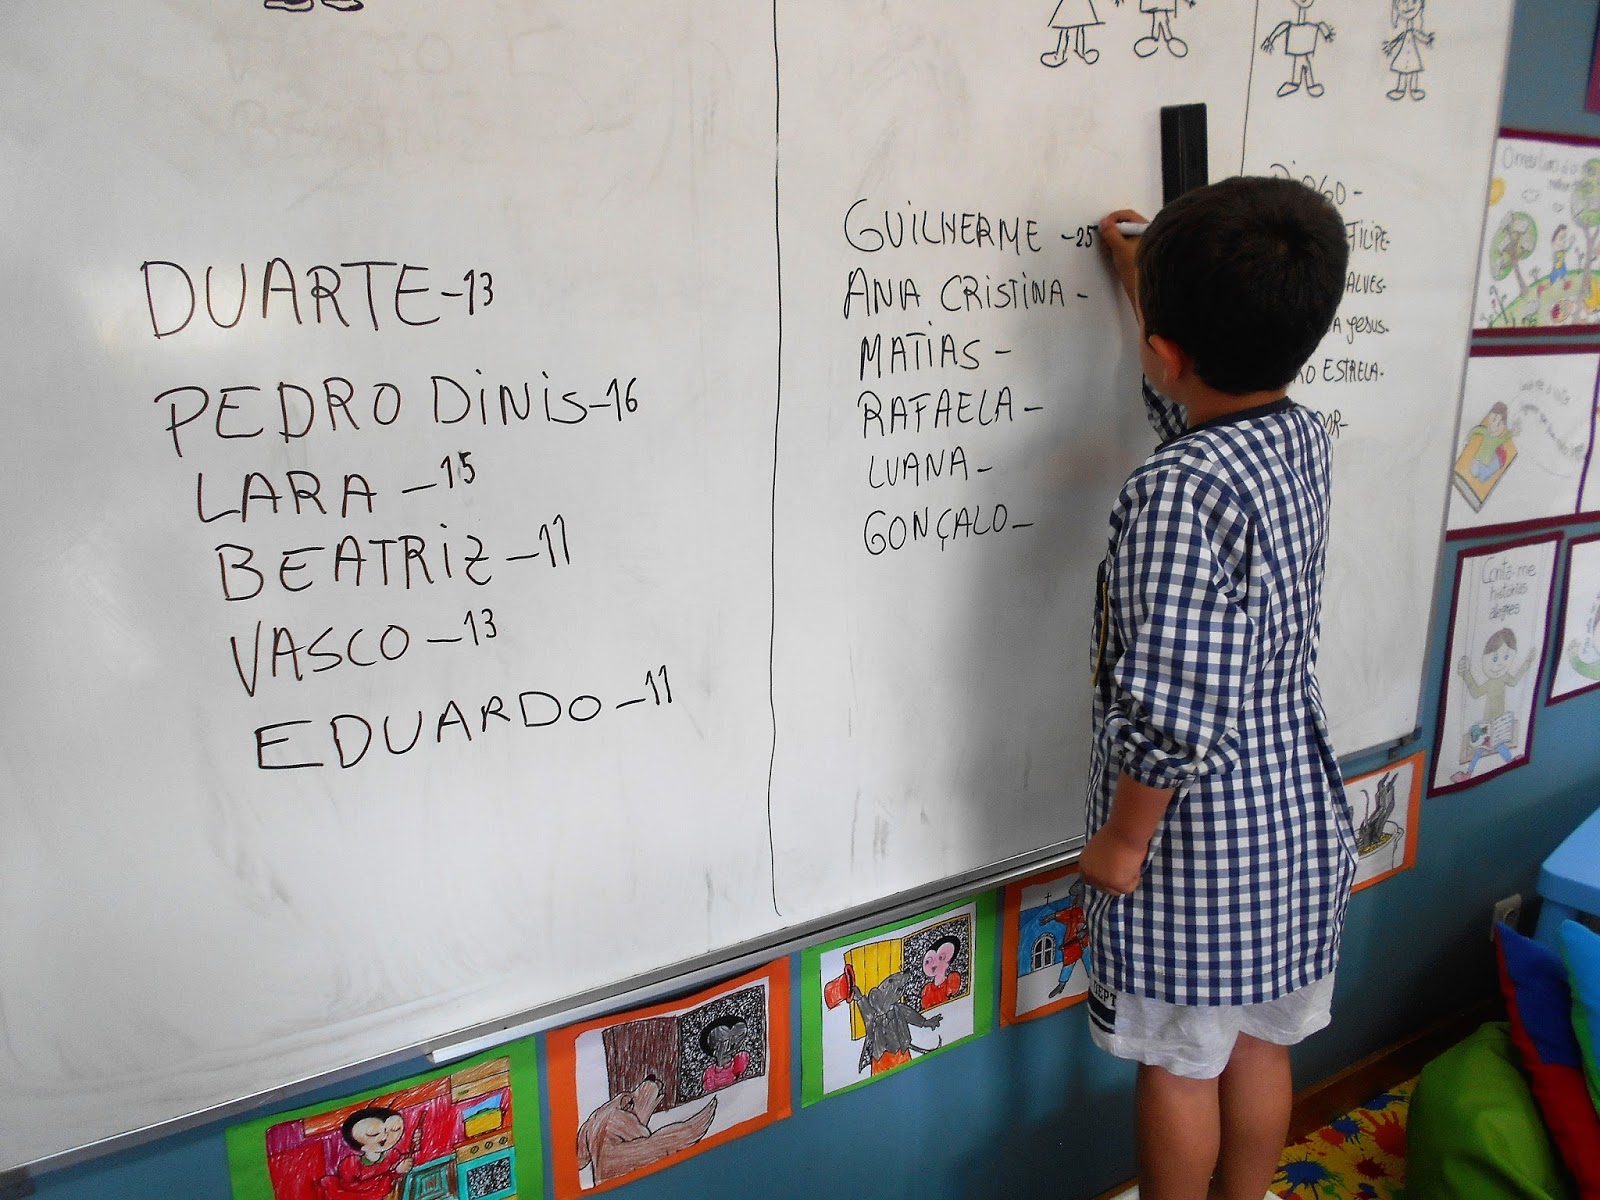 DUARTE-13
PEDRO DINIS-16
LARA -15
BEATRIZ -11
VASCO -13
EDUARDO -11
GUILHERME -25
ANA CRISTINA -
MATIAS -
RAFAELA -
LUANA -
GONÇALO -
FILIPE-
ALVES-
JESUS-
ESTRELA-
Conta-me
histórias
alegres
DEPT